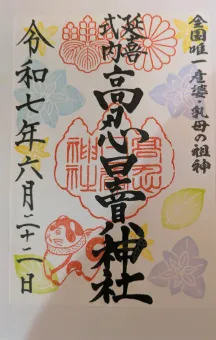 全国唯一産婆・乳母の祖神
延喜
式内
高忍日賣神社
令和七年六月二十二日